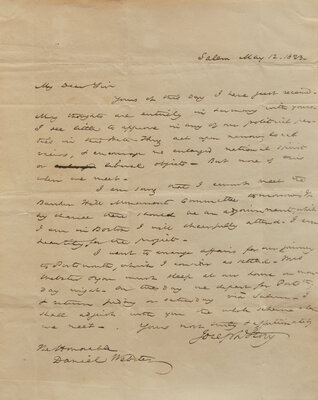 Salem May 12. 1823.
My Dear Sir
Yours of this day I have just received.
My thoughts are entirely in harmony with yours.
I see little to approve in any of our political
in this
act upon narrow
views, & encourage no enlarged national spirit
or liberal objects - But more of this
when we meet -
I am sorry that I cannot meet the
Bunker Hill Monument Committee tomorrow. If
by chance there should be an adjournment, which
I am in Boston I will cheerfully attend. I am
heartily for the project -
I want to arrange affairs for our journey
to Portsmouth, which I consider as settled - Mrs
Webster & you must sleep at our house on
day night. On
day we depart for
& return friday or saturday via Salem - I
shall adjust with you the whole scheme when
we meet - Yours most truly & affectionately
Joseph Story
The Honorable
Daniel Webster